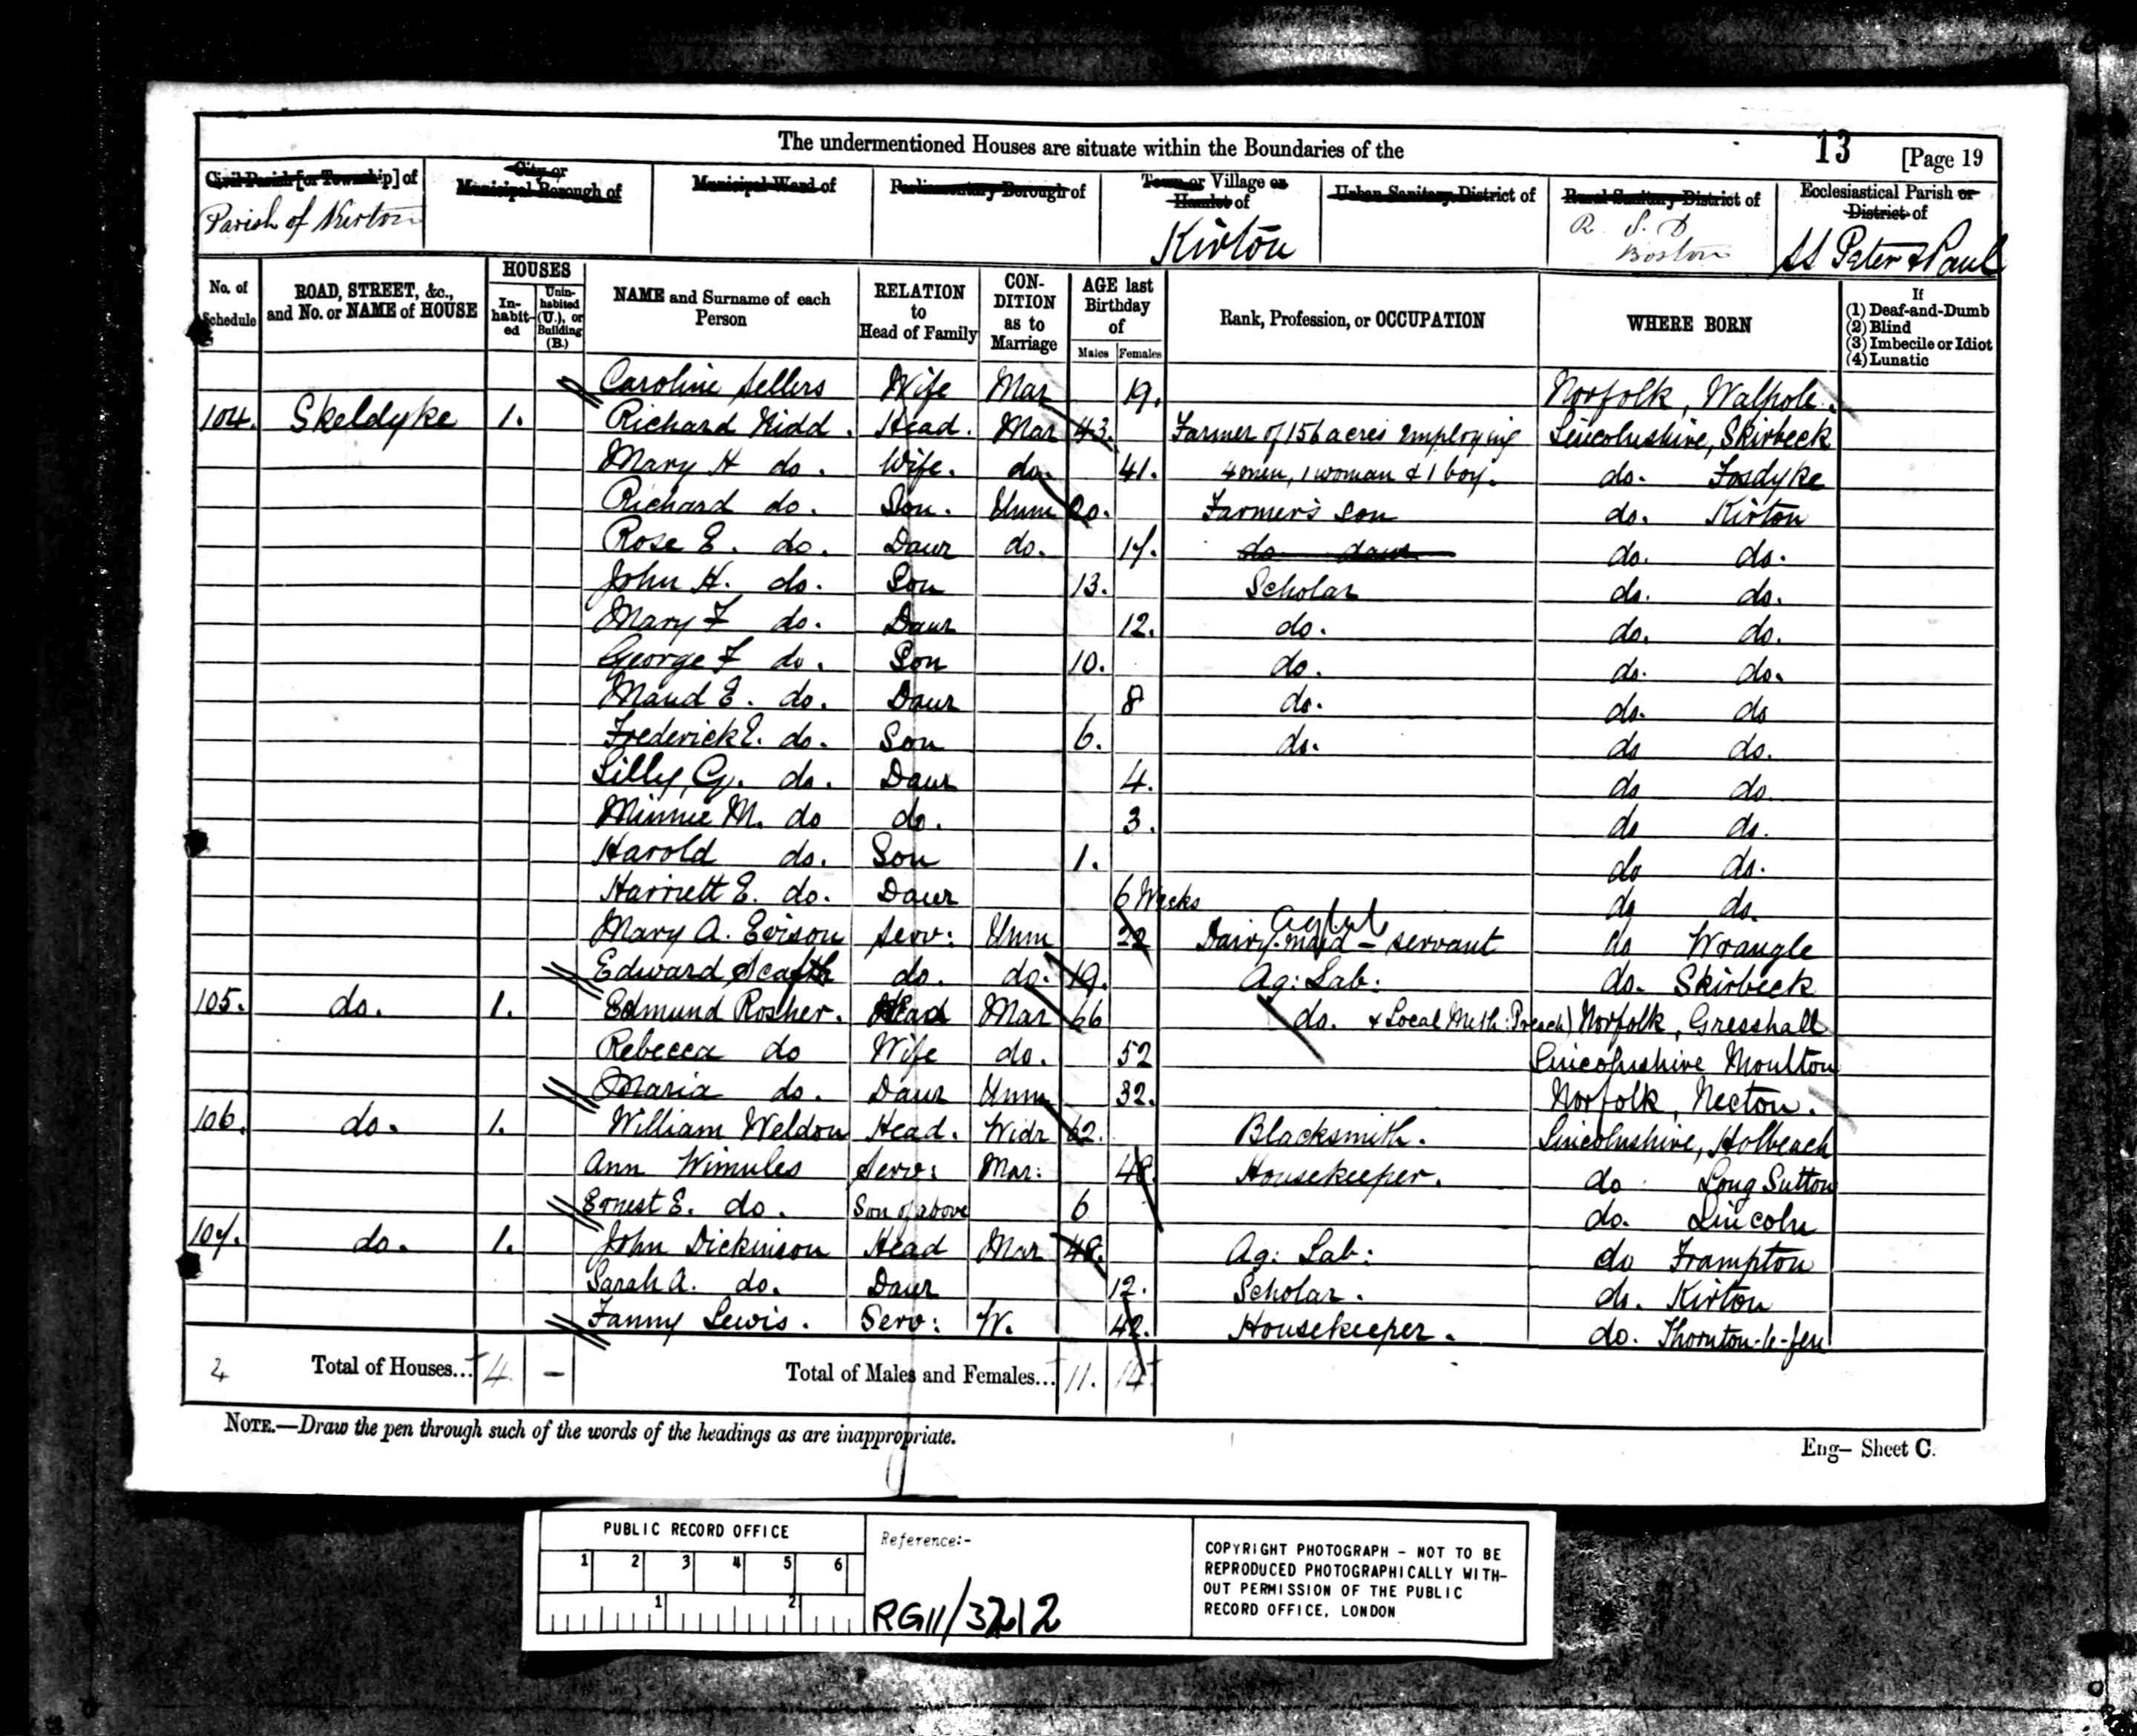 The undermentioned Houses are situate within the Boundaries of the
13 [Page 19
Civil Parish [or Township] of City or Municipal Borough of Municipal Ward of Parliamentary Borough of Town or Village or Hamlet of Urban Sanitary District of Rural Sanitary District of Ecclesiastical Parish or District of
Parish of Kirton Kirton R. S. D Boston SS Peter & Paul
No. of Schedule ROAD, STREET, &c., and No. or NAME of HOUSE HOUSES In-habit-ed Unin-habited (U.), or Building (B.) NAME and Surname of each Person RELATION to Head of Family CON-DITION as to Marriage AGE last Birthday of Males Females Rank, Profession, or OCCUPATION WHERE BORN If (1) Deaf-and-Dumb (2) Blind (3) Imbecile or Idiot (4) Lunatic
Caroline Sellers Wife Mar 19. Norfolk, Walpole.
104. Skeldyke 1. Richard Kidd. Head. Mar 43. Farmer of 156 acres employing Lincolnshire, Skirbeck
Mary H do. Wife. do. 41. 4 men, 1 woman & 1 boy. do. Fosdyke
Richard do. Son. Unm 20. Farmer's Son do. Kirton
Rose E. do. Daur do. 17. do daur do. do.
John H. do. Son 13. Scholar do. do.
Mary F do. Daur 12. do. do. do.
George F do. Son 10. do. do. do.
Maud E. do. Daur 8 do. do. do
Frederick E. do. Son 6. do. do do.
Lilly G. do. Daur 4. do do.
Minnie M. do do. 3. do do.
Harold do. Son 1. do do.
Harriett E. do. Daur 6 Weeks do do.
Mary A. Evison Serv: Unm 22 Dairy-maid - servant do Wrangle
Edward Scafth do. do. 19. Ag: Lab: do. Skirbeck
105. do. 1. Edmund Rosher. Head Mar 66 do. & Local Meth: Preach) Norfolk, Gresshall
Rebecca do Wife do. 52 Lincolnshire Moulton
Maria do. Daur Unm 32. Norfolk, Necton.
106. do. 1. William Weldon Head. Widr 62. Blacksmith. Lincolnshire, Holbeach
Ann Wimules Serv: Mar: 48. Housekeeper. do Long Sutton
Ernest E. do. Son of above 6 do. Lincoln
107. do. 1. John Dickinson Head Mar 48. Ag: Lab: do Frampton
Sarah A. do. Daur 12. Scholar. do. Kirton
Fanny Lewis. Serv: W. 42. Housekeeper. do. Thornton-le-fen
2 Total of Houses... 4 - Total of Males and Females... 11. 14
NOTE.—Draw the pen through such of the words of the headings as are inappropriate.
Eng— Sheet C.
PUBLIC RECORD OFFICE
1 2 3 4 5 6
1 2
Reference:-
RG11/3212
COPYRIGHT PHOTOGRAPH - NOT TO BE
REPRODUCED PHOTOGRAPHICALLY WITH-
OUT PERMISSION OF THE PUBLIC
RECORD OFFICE, LONDON